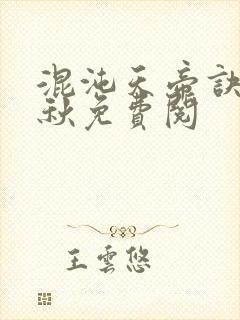 混沌天帝訣
秋免費閱
王雲悠